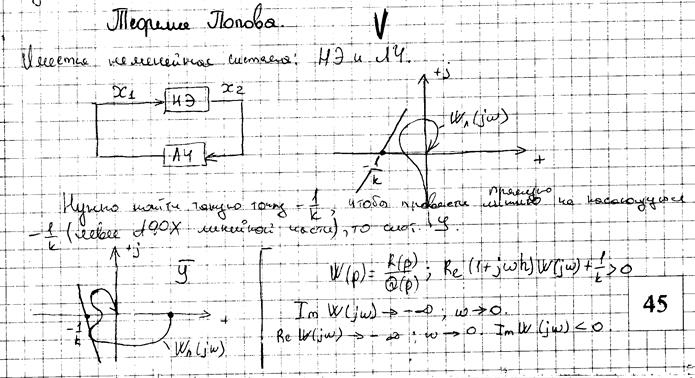 Теорема Попова.
V
Имеется нелинейная система: НЭ и ЛЧ.
x1 НЭ x2
ЛЧ
+j
Wл(jω)
-1/k
+
Нужно найти такую точку -1/k, чтобы провести прямую не касающуюся
-1/k (левее АФХ линейной части), то сист. у.
+j
ȳ
-1/k
+
Wл(jω)
W(p)= R(p)/Q(p); Re(1+jωh)W(jω)+1/k>0
Im W(jω)→-∞, ω→0.
Re W(jω)→-∞; ω→0. Im W(jω)<0.
45